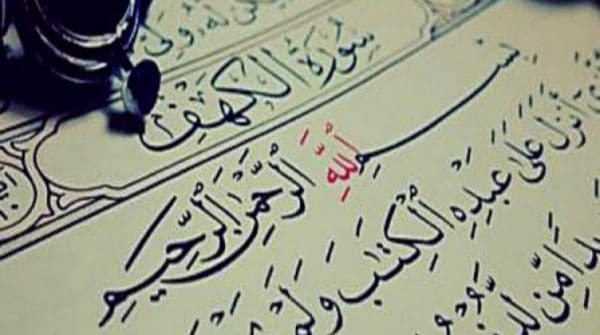 سُورَةُ الكَهْفِ
بِسْمِ اللَّهِ الرَّحْمَٰنِ الرَّحِيمِ
أَنْزَلَ عَلَىٰ عَبْدِهِ الْكِتَابَ وَلَمْ